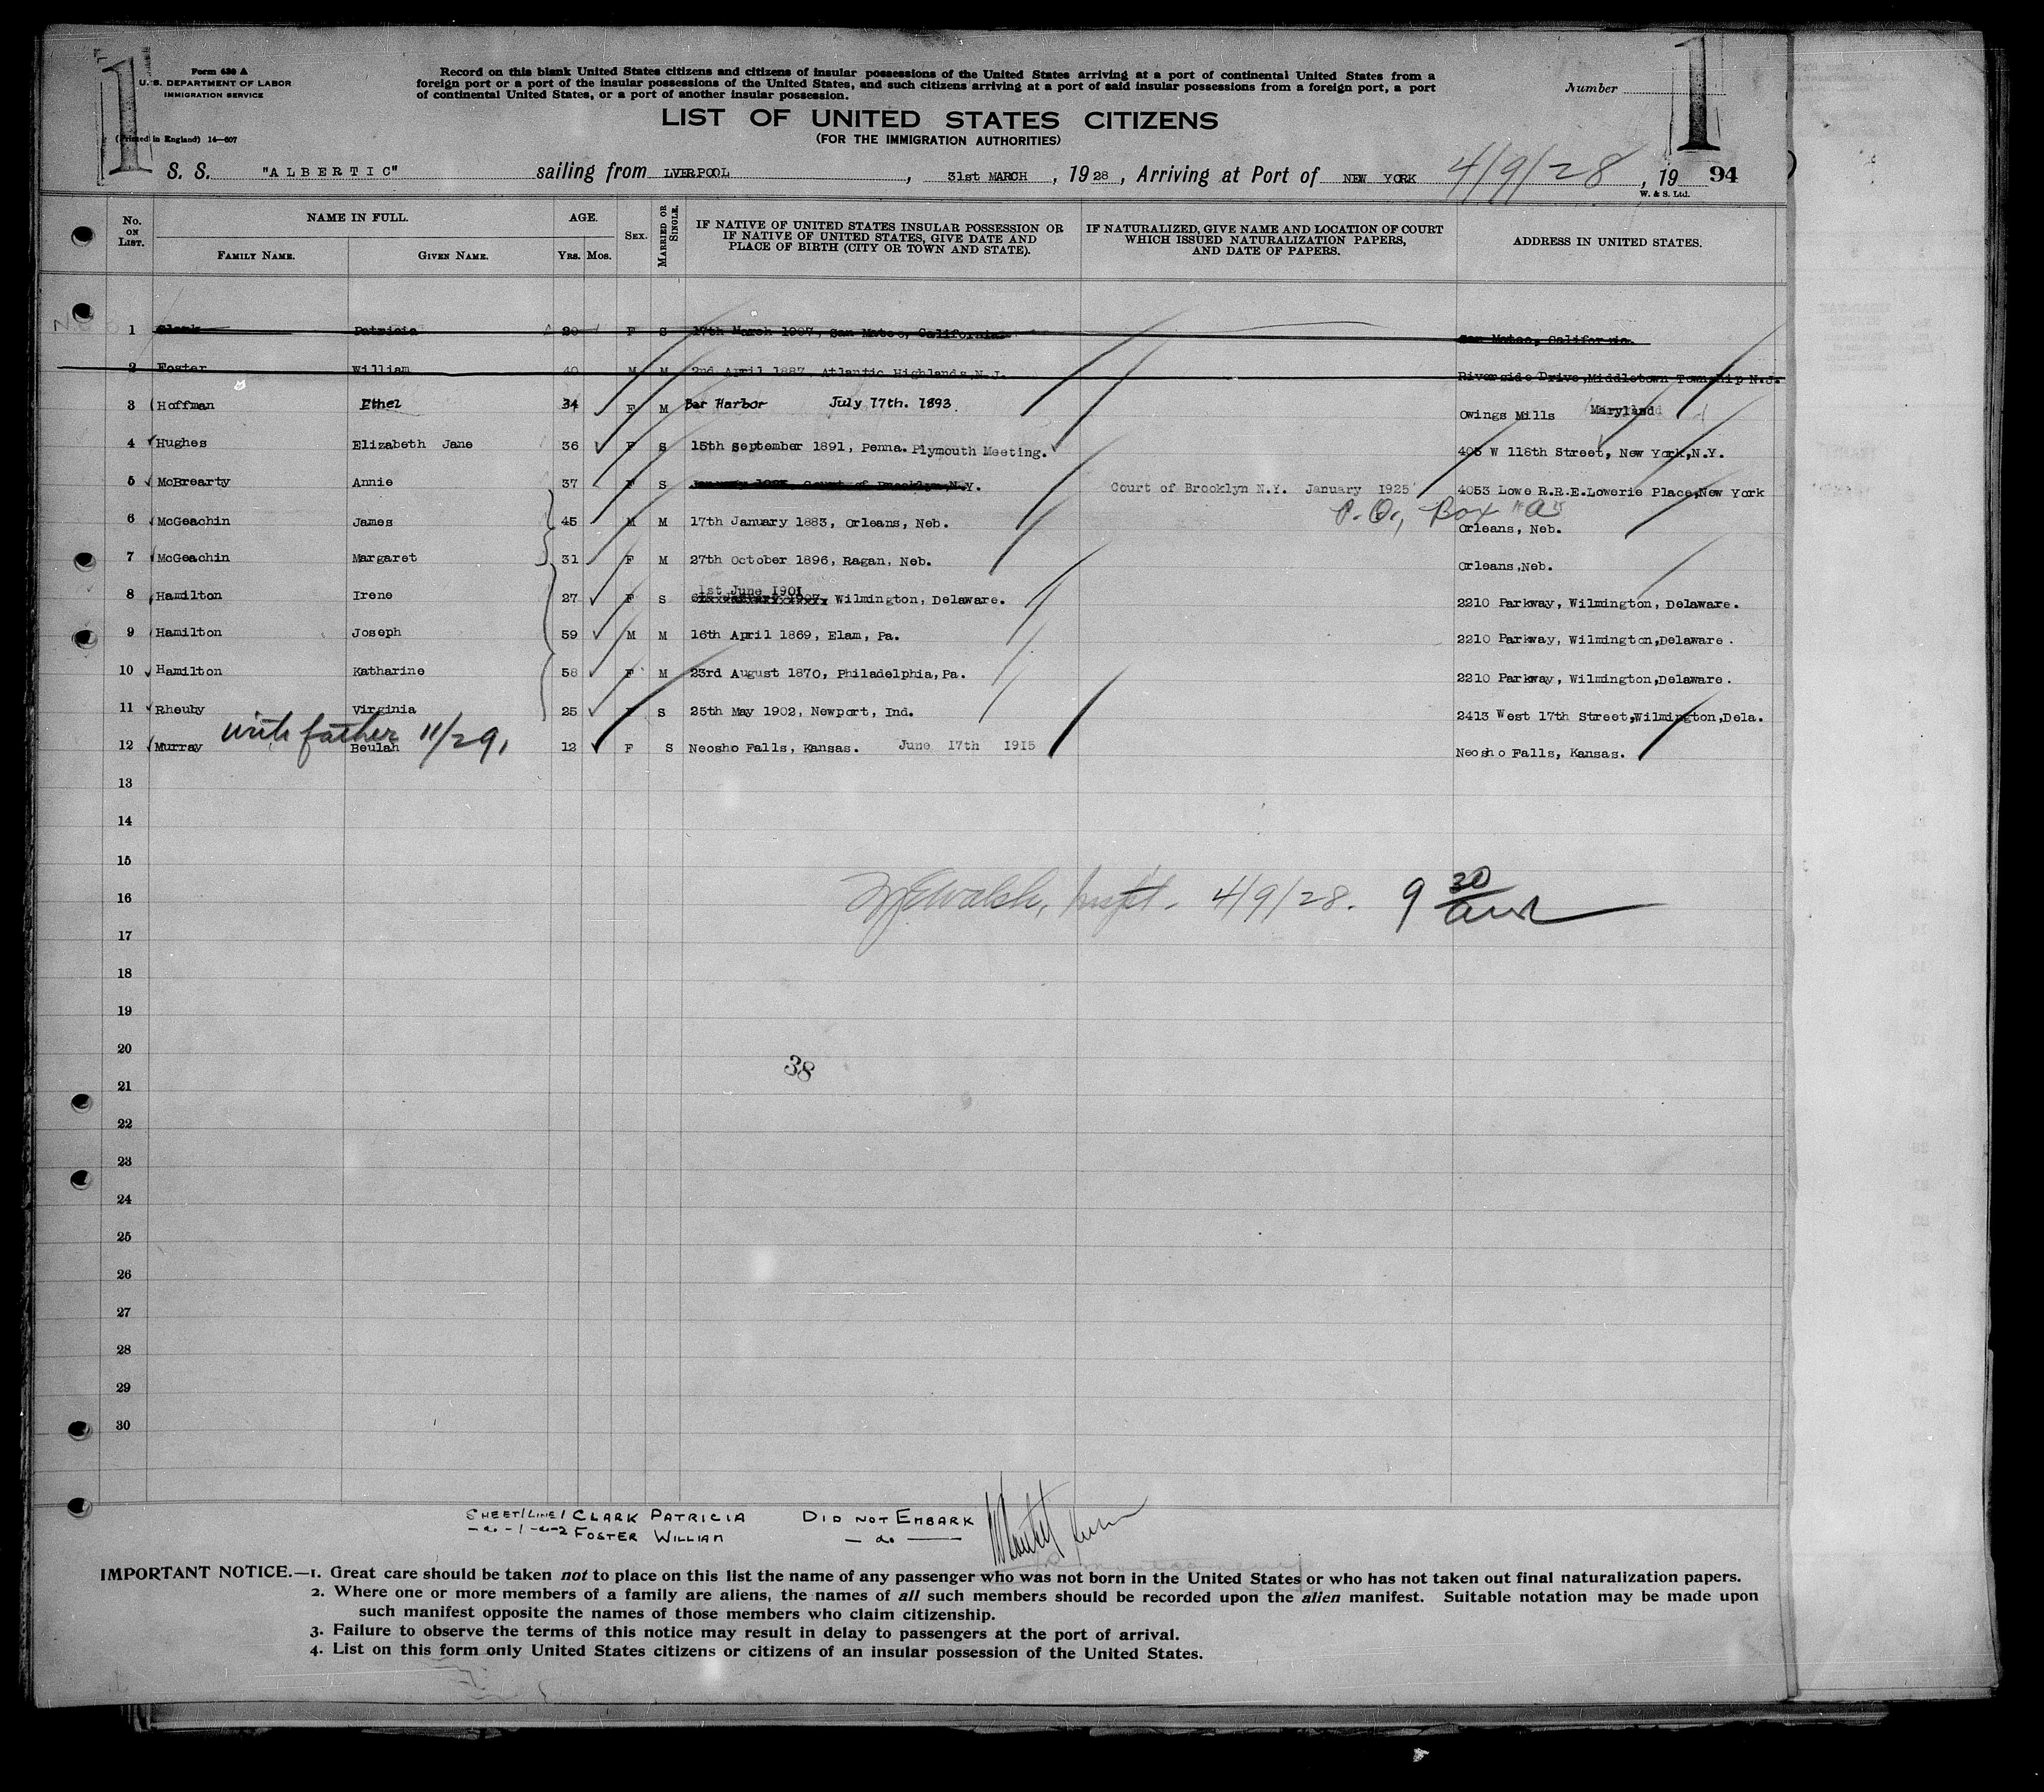 1
1
Form 630 A
U. S. DEPARTMENT OF LABOR
IMMIGRATION SERVICE
(Printed in England) 14—607
Record on this blank United States citizens and citizens of insular possessions of the United States arriving at a port of continental United States from a
foreign port or a port of the insular possessions of the United States, and such citizens arriving at a port of said insular possessions from a foreign port, a port
of continental United States, or a port of another insular possession.
Number
LIST OF UNITED STATES CITIZENS
(FOR THE IMMIGRATION AUTHORITIES)
S. S. "ALBERTIC" sailing from LVERPOOL , 31st MARCH , 1928 , Arriving at Port of NEW YORK 4/9/28 , 19 94
W. & S. Ltd.
No. ON LIST. NAME IN FULL. FAMILY NAME. GIVEN NAME. AGE. YRS. MOS. SEX. MARRIED OR SINGLE. IF NATIVE OF UNITED STATES INSULAR POSSESSION OR IF NATIVE OF UNITED STATES, GIVE DATE AND PLACE OF BIRTH (CITY OR TOWN AND STATE). IF NATURALIZED, GIVE NAME AND LOCATION OF COURT WHICH ISSUED NATURALIZATION PAPERS, AND DATE OF PAPERS. ADDRESS IN UNITED STATES.
1 Clark Patricia 20 F S 17th March 1907, San Mateo, California. San Mateo, California.
2 Foster William 40 M M 2nd April 1887, Atlantic Highlands, N.J. Riverside Drive, Middletown Township N.J.
3 Hoffman Ethel 34 F M Bar Harbor July 17th. 1893. Owings Mills Maryland
4 Hughes Elizabeth Jane 36 F S 15th September 1891, Penna. Plymouth Meeting. 405 W 118th Street, New York, N.Y.
5 McBrearty Annie 37 F S January 1925, Court of Brooklyn, N.Y. Court of Brooklyn N.Y. January 1925 4053 Lowe R.R.E. Lowerie Place, New York
P.O., Box "A"
6 McGeachin James 45 M M 17th January 1883, Orleans, Neb. Orleans, Neb.
7 McGeachin Margaret 31 F M 27th October 1896, Ragan, Neb. Orleans, Neb.
1st June 1901
8 Hamilton Irene 27 F S Wilmington, Delaware. 2210 Parkway, Wilmington, Delaware.
9 Hamilton Joseph 59 M M 16th April 1869, Elam, Pa. 2210 Parkway, Wilmington, Delaware.
10 Hamilton Katharine 58 F M 23rd August 1870, Philadelphia, Pa. 2210 Parkway, Wilmington, Delaware.
11 Rheuby Virginia 25 F S 25th May 1902, Newport, Ind. 2413 West 17th Street, Wilmington, Dela.
with father 11/29,
12 Murray Beulah 12 F S Neosho Falls, Kansas. June 17th 1915 Neosho Falls, Kansas.
13
14
15
16 Walsh, Inspt. 4/9/28. 9 30 am
17
18
19
20
38
21
22
23
24
25
26
27
28
29
30
SHEET 1 LINE 1 CLARK PATRICIA DID NOT EMBARK
- do - 1 - do - 2 FOSTER WILLIAM — do —
IMPORTANT NOTICE.—1. Great care should be taken not to place on this list the name of any passenger who was not born in the United States or who has not taken out final naturalization papers.
2. Where one or more members of a family are aliens, the names of all such members should be recorded upon the alien manifest. Suitable notation may be made upon
such manifest opposite the names of those members who claim citizenship.
3. Failure to observe the terms of this notice may result in delay to passengers at the port of arrival.
4. List on this form only United States citizens or citizens of an insular possession of the United States.